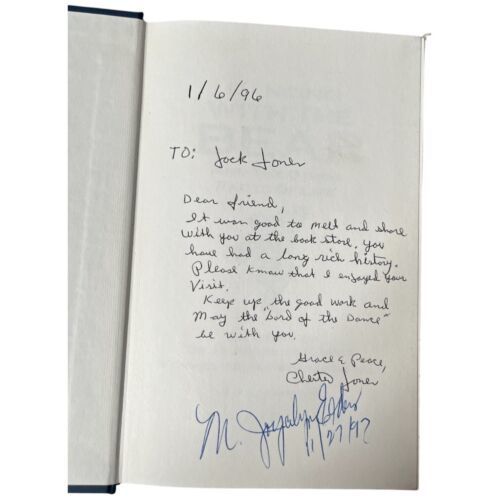 1/6/96
TO: Jack Jones
Dear friend,
It was good to meet and share
with you at the book store. You
have had a long rich history.
Please know that I enjoyed your
Visit.
Keep up the good work and
May the "Lord of the Dance"
be with you.
Grace & Peace,
Chester Jones
M. Joycelyn Elders
11/27/97